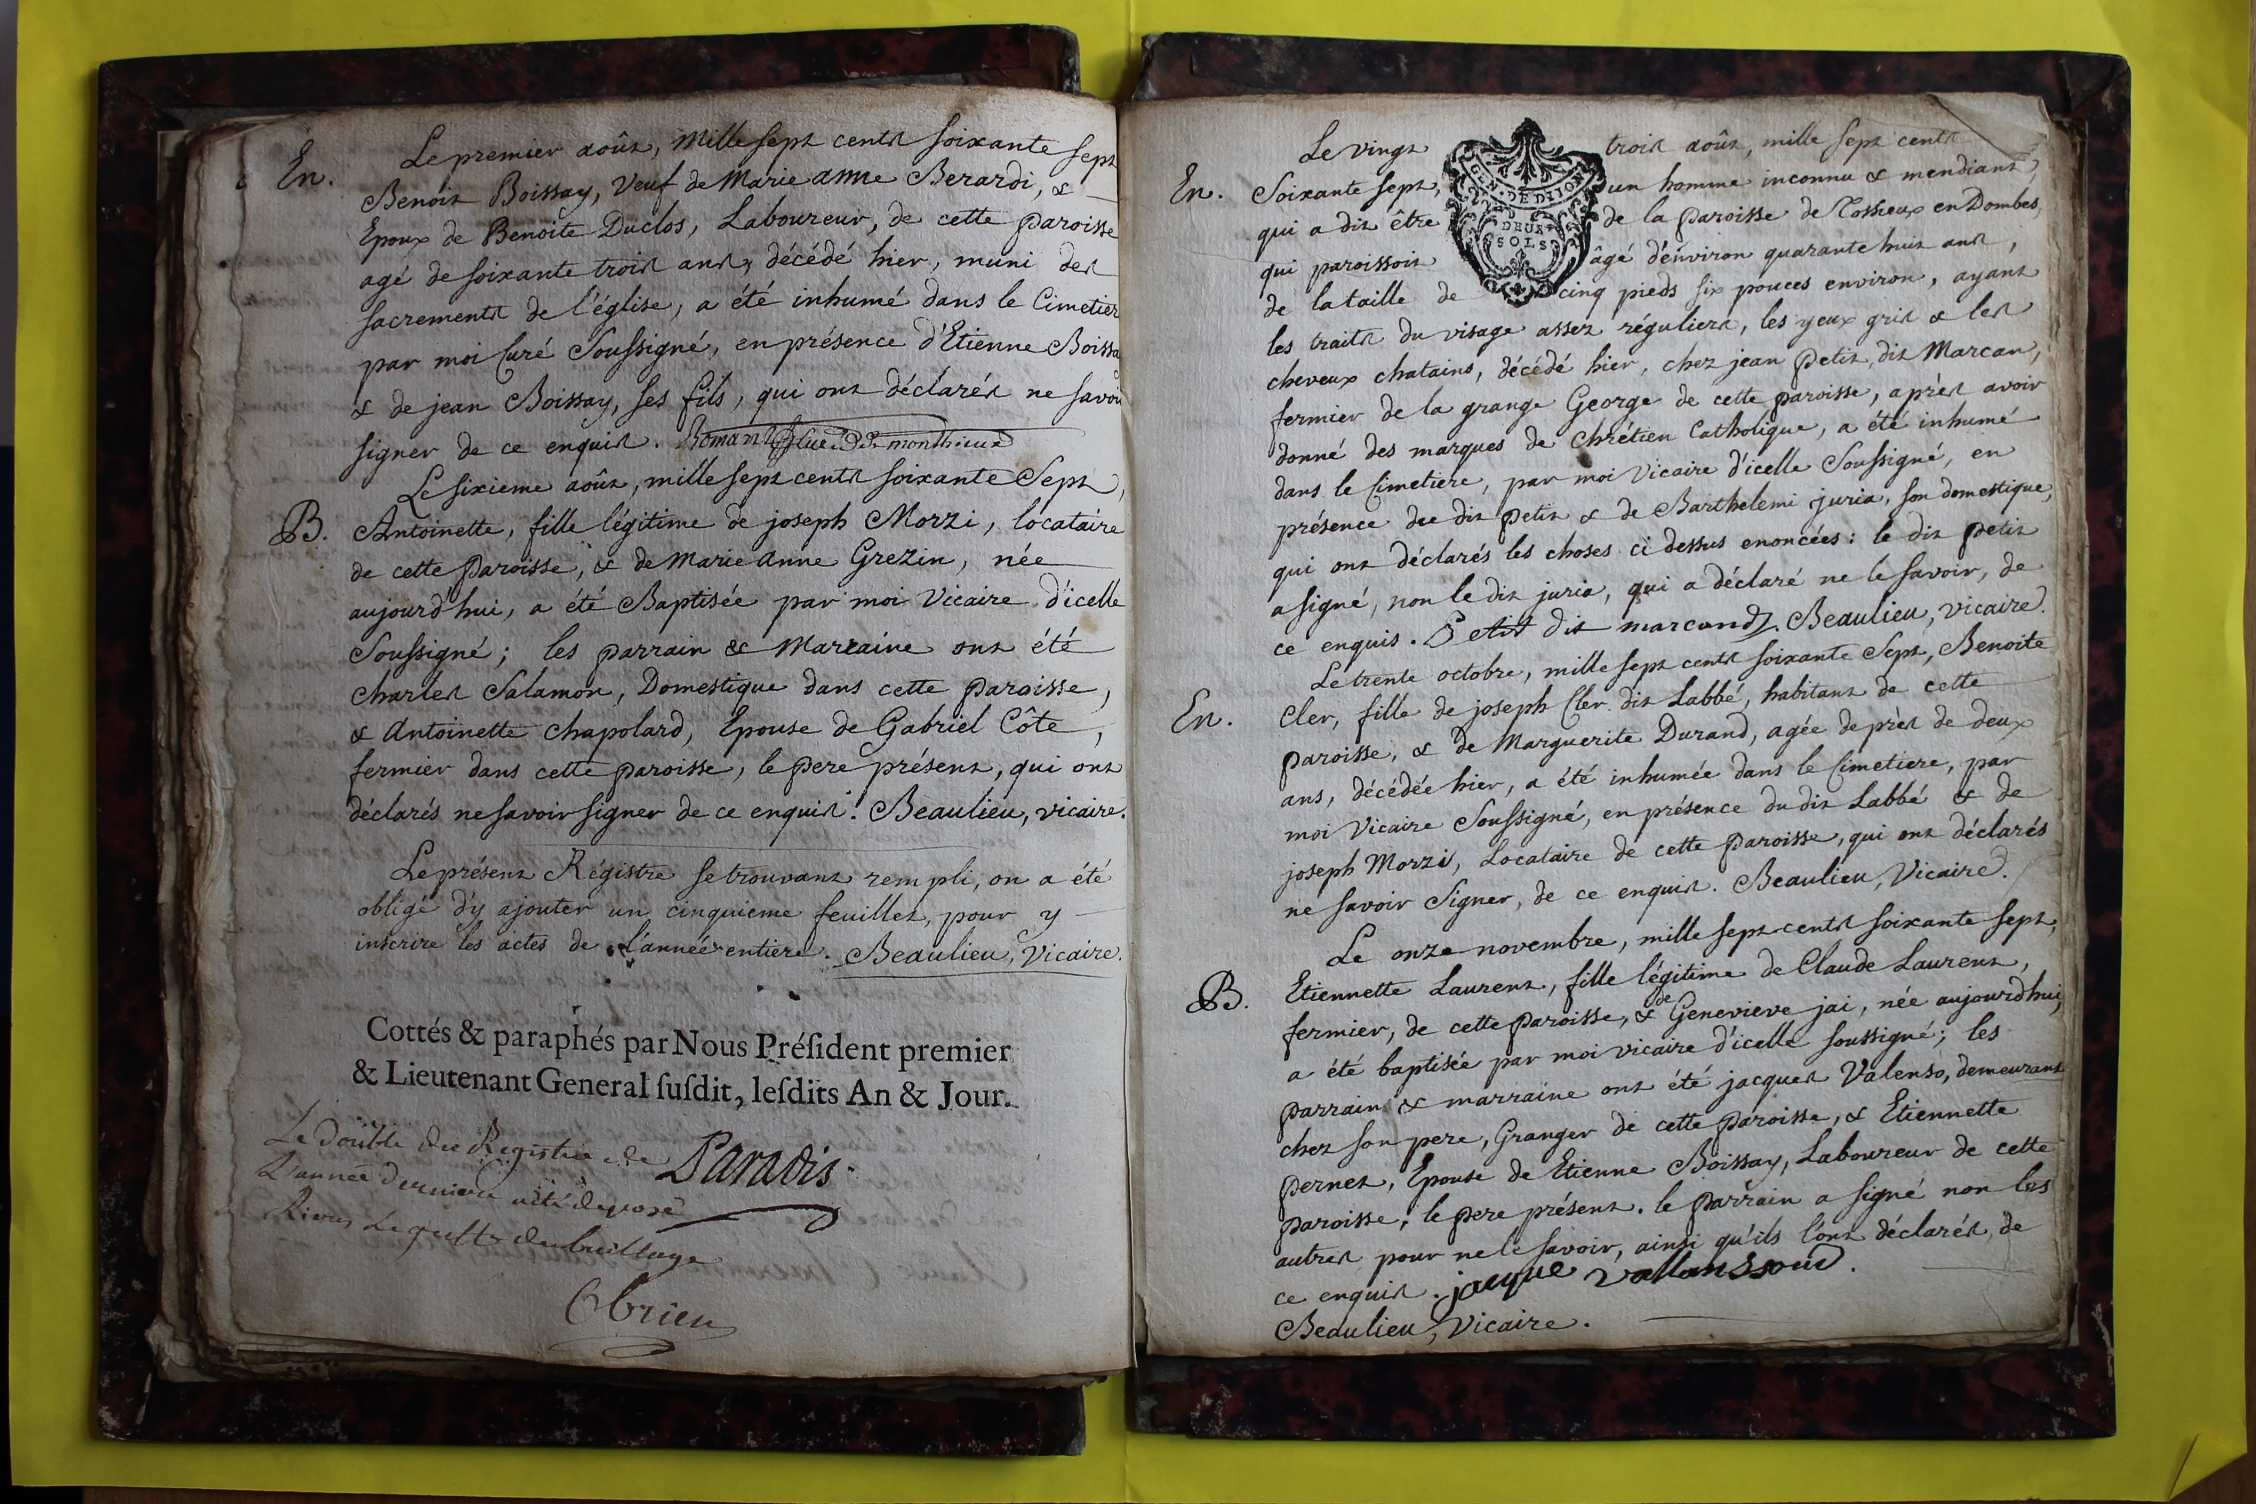 En. Le premier août, mille sept cents soixante sept
Benoit Boissay, Veuf de Marie anne Berardi, &
Epoux de Benoite Duclos, Laboureur, de cette paroisse
agé de soixante trois ans, décédé hier, muni des
sacrements de l'église, a été inhumé dans le Cimetier
par moi Curé Soussigné, en présence d'Etienne Boissa
& de jean Boissay, ses fils, qui ont déclarés ne savoi
signer de ce enquis. Romans
Le sixieme août, mille sept cents soixante Sept,
B. Antoinette, fille légitime de joseph Morzi, locataire
de cette Paroisse, & de Marie anne Grezin, née
aujourd'hui, a été Baptisée par moi Vicaire d'icelle
Soussigné; les parrain & Marraine ont été
Charles Salamon, Domestique dans cette paroisse,
& Antoinette Chapolard, Epouse de Gabriel Côte,
fermier dans cette paroisse, le pere présent, qui ont
déclarés ne savoir signer de ce enquis. Beaulieu, vicaire.
Le présent Régistre se trouvant rempli, on a été
obligé d'y ajouter un cinquieme feuillet, pour y
inscrire les actes de l'année entiere. Beaulieu, Vicaire.
Cottés & paraphés par Nous Préſident premier
& Lieutenant General ſuſdit, leſdits An & Jour.
Le double du Registre de
L'année derniere a été deposé
Paradis
Riere Le greffe du bailliage
Obrien
Le vingt trois août, mille sept cents
GEN. DE DIJON
DEUX
SOLS
En. Soixante sept, un homme inconnu & mendiant,
qui a dit être de la paroisse de en Dombes,
qui paroissoit âgé d'environ quarante huit ans,
de la taille de cinq pieds six pouces environ, ayant
les traits du visage assez réguliers, les yeux gris & les
cheveux chatains, décédé hier, chez jean Petit, dit Marcan,
fermier de la grange George de cette paroisse, après avoir
donné des marques de Chrétien Catholique, a été inhumé
dans le Cimetiere, par moi Vicaire d'icelle Soussigné, en
présence du dit Petit & de Barthelemi juria, son domestique,
qui ont déclarés les choses ci dessus enoncées: le dit petit
a signé, non le dit juria, qui a déclaré ne le savoir, de
ce enquis. Petit dit marcand. Beaulieu, vicaire.
Le trente octobre, mille sept cents soixante Sept, Benoite
En. Cler, fille de joseph Cler dit Labbé, habitant de cette
paroisse, & de Marguerite Durand, agée de près de deux
ans, décédée hier, a été inhumée dans le Cimetiere, par
moi Vicaire Soussigné, en présence du dit Labbé & de
joseph Morzi, Locataire de cette Paroisse, qui ont déclarés
ne savoir Signer, de ce enquis. Beaulieu, Vicaire.
Le onze novembre, mille sept cents soixante sept,
B. Etiennette Laurent, fille légitime de Claude Laurent,
fermier, de cette paroisse, & de Genevieve jai, née aujourd'hui,
a été baptisée par moi vicaire d'icelle soussigné; les
parrain & marraine ont été jacques Valenso, demeurant
chez son pere, Granger de cette paroisse, & Etiennette
pernet, Epouse de Etienne Boissay, Laboureur de cette
paroisse, le pere présent. le parrain a signé non les
autres pour ne le savoir, ainsi qu'ils l'ont déclarés, de
ce enquis. jacque vallanssoud.
Beaulieu, Vicaire.